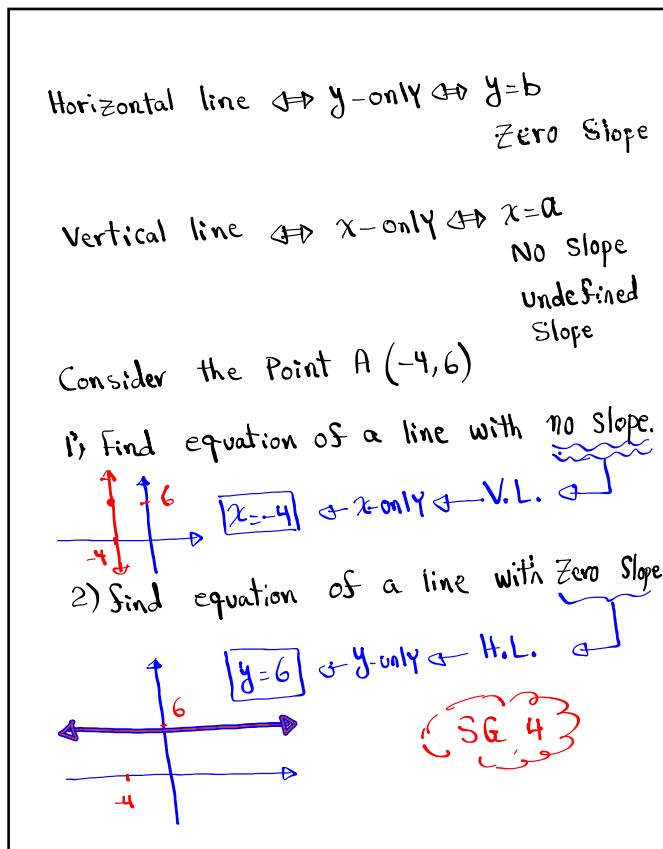 Horizontal line ⇔ y-only ⇔ y=b
Zero Slope
Vertical line ⇔ x-only ⇔ x=a
No Slope
Undefined
Slope
Consider the Point A (-4,6)
1) Find equation of a line with no Slope.
6
x=-4 ← x-only ← V.L. ←
-4
2) find equation of a line with Zero Slope
y=6 ← y-only ← H.L. ←
6
SG 4
-4